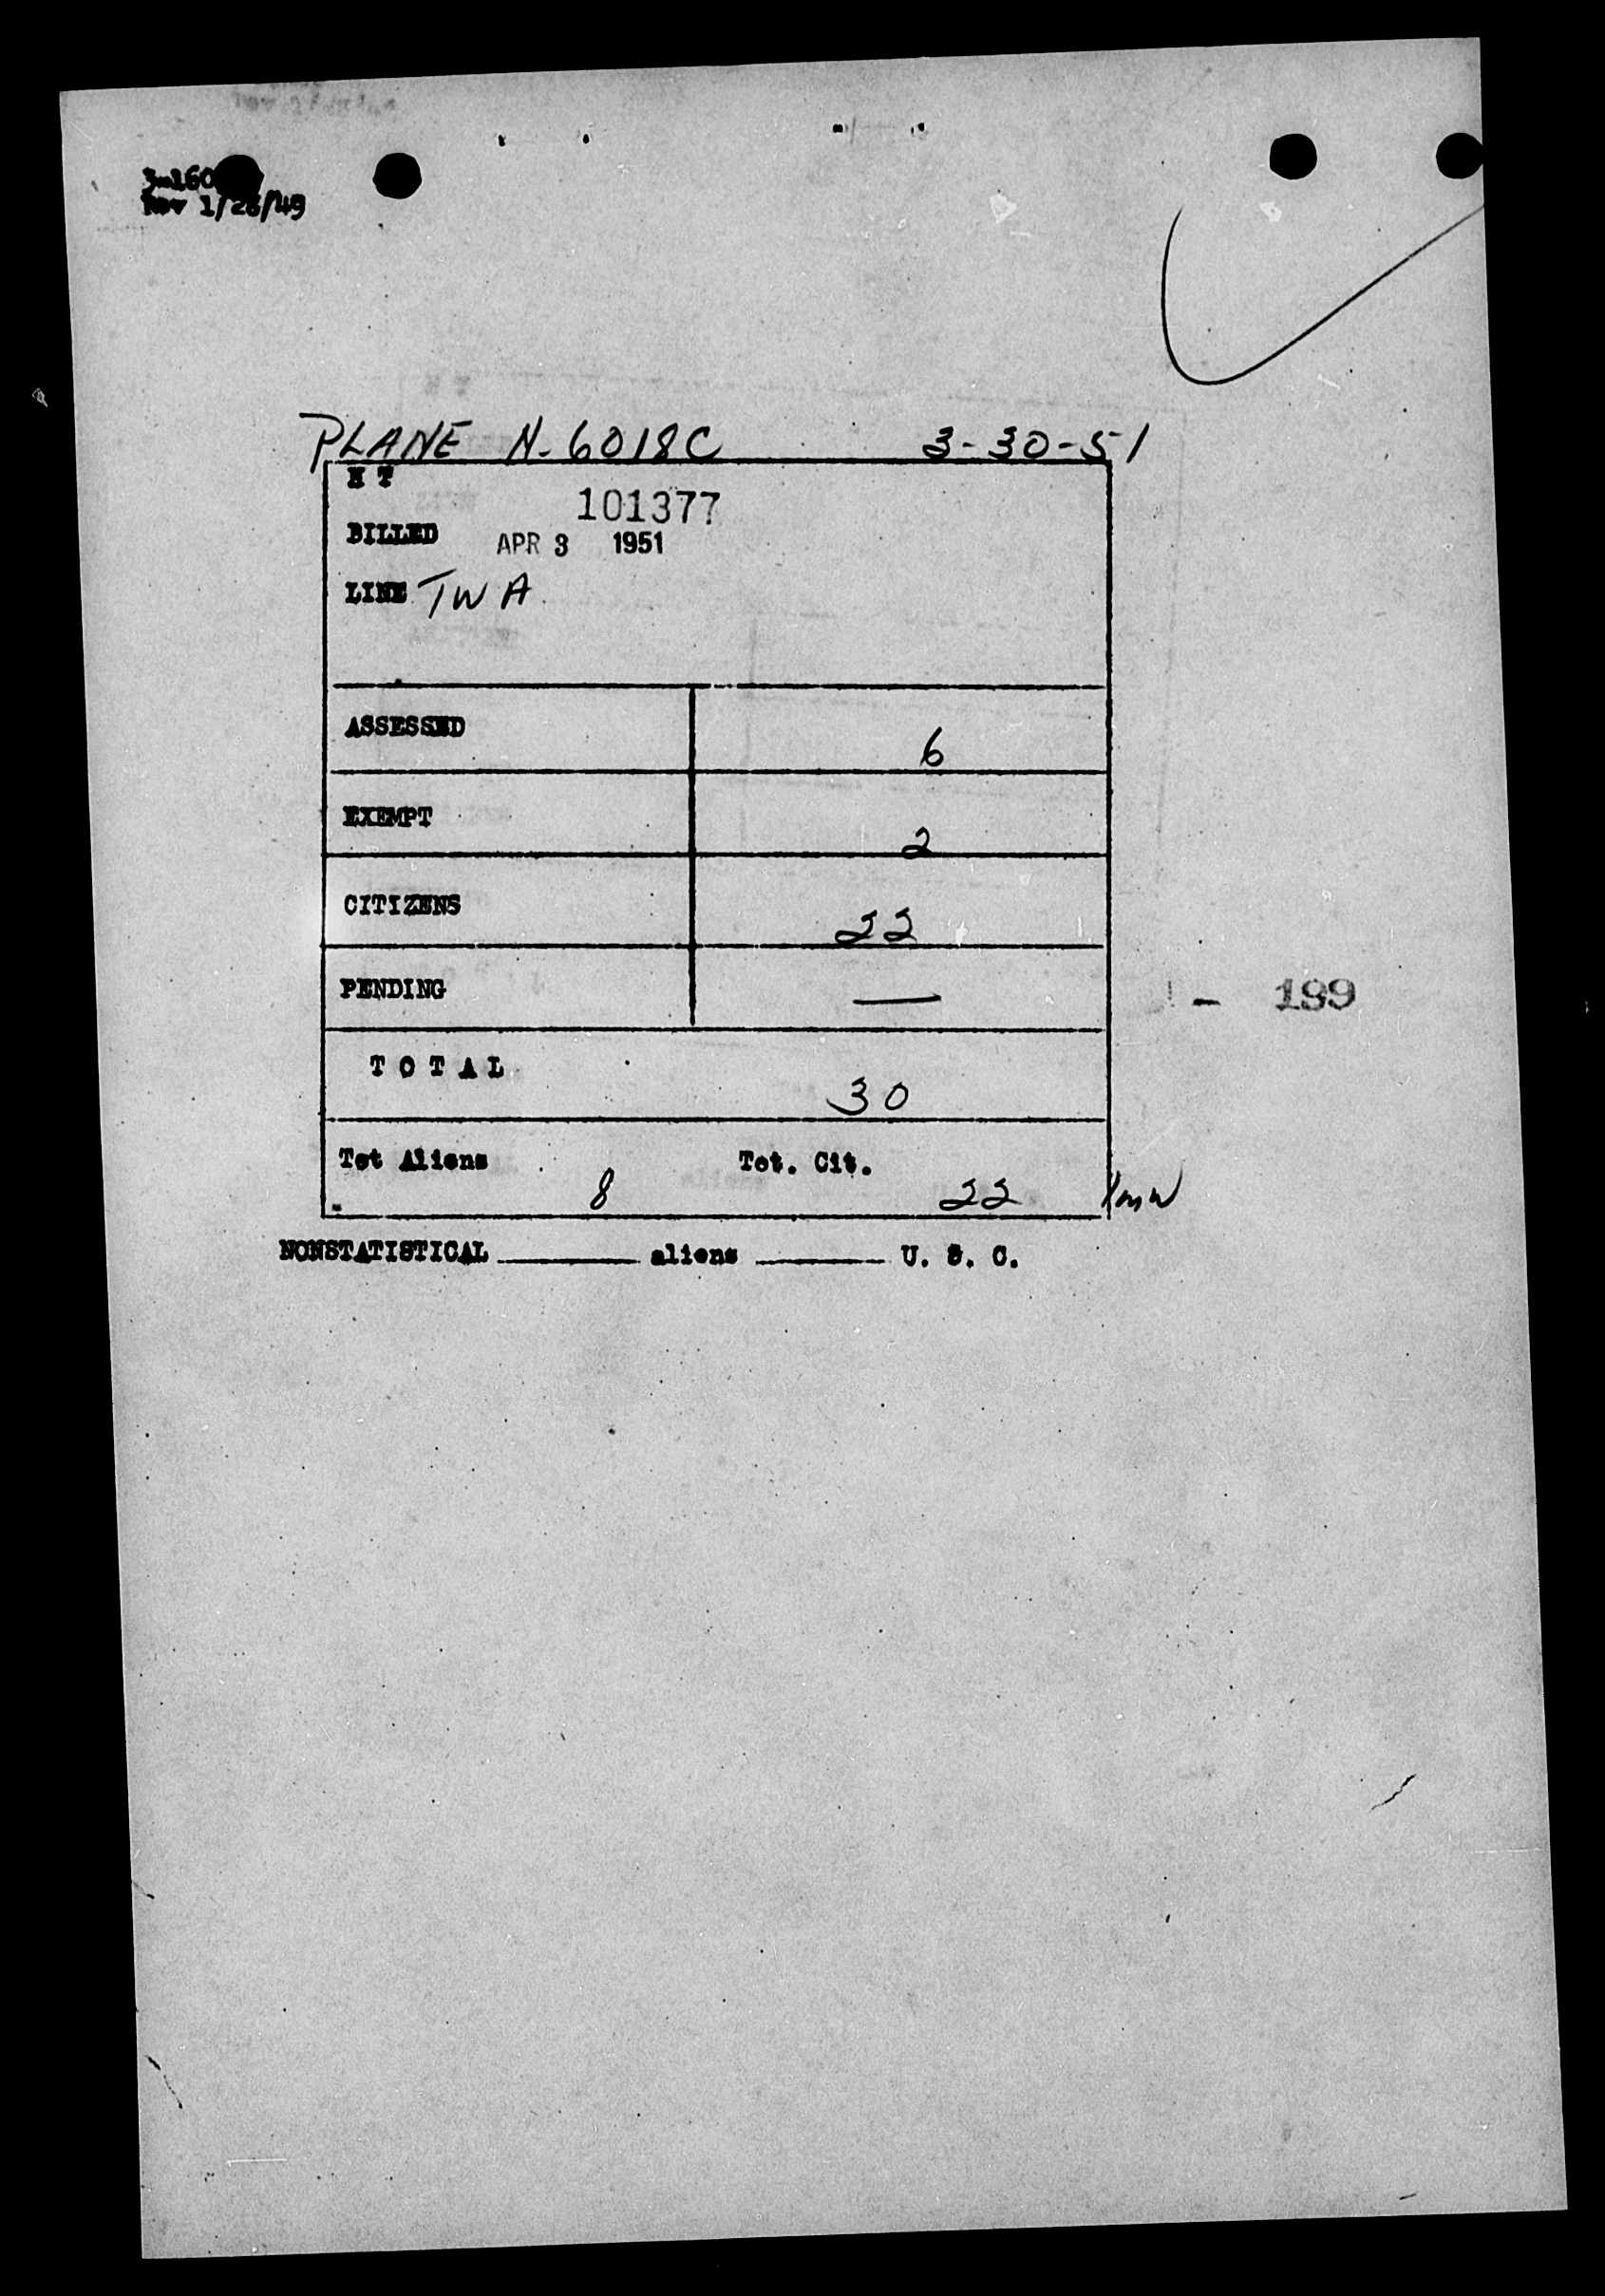 3-160
Rev 1/26/49
PLANE N-6018C 3-30-51
H T
101377
BILLED APR 3 1951
LINE TWA
ASSESSED 6
EXEMPT 2
CITIZENS 22
PENDING —
- 199
TOTAL 30
Tot Aliens 8 Tot. Cit. 22
NONSTATISTICAL ______ aliens ______ U. S. C.